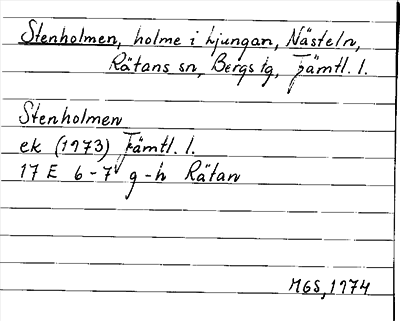 Stenholmen, holme i Ljungan, Nästeln,
Rätans sn, Bergs tg, Jämtl. l.
Stenholmen
ek (1973) Jämtl. l.
17 E 6-7 g-h Rätan
MGS, 1974